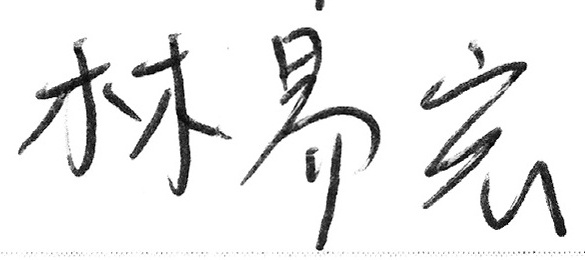 林易宏